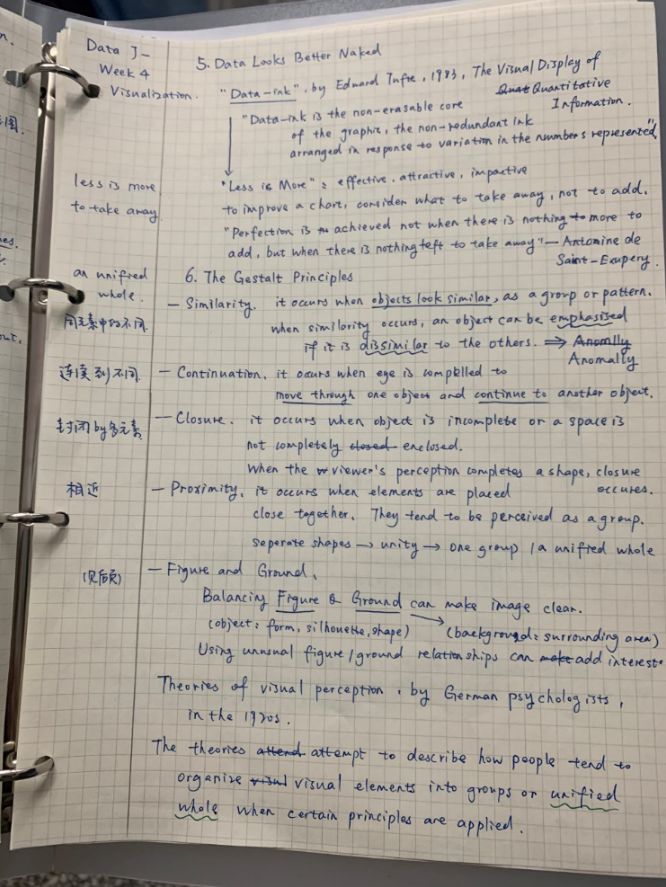 Data J -
Week 4
Visualization.
5. Data Looks Better Naked
"Data-ink", by Edward Tufte, 1983, The Visual Display of
Quat Quantitative
Information.
"Data-ink is the non-erasable core
of the graphic, the non-redundant ink
arranged in response to variation in the numbers represented."
less is more
to take away
"Less is More": effective, attractive, impactive
to improve a chart, consider what to take away, not to add.
"Perfection is achieved not when there is nothing to more to
add, but when there is nothing left to take away" — Antonine de
Saint-Exupery.
an unified
whole.
6. The Gestalt Principles
同元素中的不同.
— Similarity. it occurs when objects look similar, as a group or pattern.
when similority occurs, an object can be emphasised
if it is dissimilar to the others. ⇒ Anomlly
Anomally
连续到不同.
— Continuation. it occurs when eye is complled to
move through one object and continue to another object.
封闭by多元素
— Closure. it occurs when object is incomplete or a space is
not completely closed enclosed.
When the viewer's perception completes a shape, closure
occures.
相近
— Proximity. it occurs when elements are placed
close together. They tend to be perceived as a group.
seperate shapes → unity → one group / a unified whole
— Figure and Ground.
Balancing Figure & Ground can make image clear.
(object: form, silhouette, shape) (background: surrounding area)
Using unusual figure/ground relationships can make add interest.
Theories of visual perception, by German psychologists,
in the 1920s.
The theories attend attempt to describe how people tend to
organize visul visual elements into groups or unified
whole when certain principles are applied.